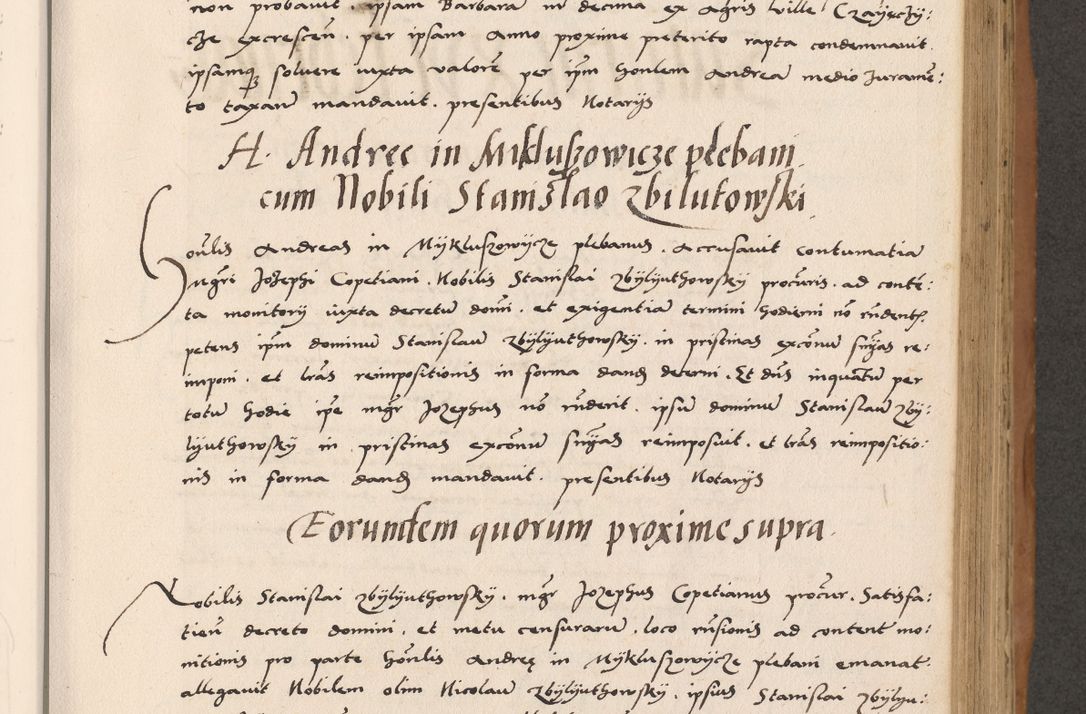 non probavit. ipsam Barbara in decima ex agris ville Czayęczy:
cze excrescen̄. per ipsam anno proxime preterito rapta condemnavit.
ipsamq̨ solvere iuxta valorē per ip̄m honlem Andrea medio Jurame͂:
to taxan̄ mandavit. presentibus Notarijs
H. Andreę in Mikluszowicze plebani
cum Nobili Stanislao Zbilutowski
Hon̄lis Andreas in Mÿkluszowÿcze plebanus. Accusavit contumatia
mgr̄i Jozephi Copetiani. Nobilis Stanislai Zbÿlÿuthowskÿ procur̄is. ad conte͂:
ta monitorij iuxta decretū domi͂. et exigentia termini hodierni nō r͂ndentis.
petens ip̄m dominū Stanislaū Zbÿlÿuthowskÿ. in pristinas exco͂nū sn̄yas re:
imponi. et l͂ras reimpositionis in forma dand̨ decerni. Et dn̄s inquantū per
totū hodie ip̄e mgr̄ Jozephus nō r͂nderit. ipsū dominū Stanislaū Zbÿ:
lÿuthowskÿ in. pristinas exco͂nū sn̄yas reimposuit. et l͂ras reimpositio:
nis in forma dand̨ mandavit. presentibus Notarijs
Eorundem quorum proxime supra.
Nobilis Stanislai Zbÿlÿuthowskÿ. mgr̄ Jozephus Copetianus procur̄. Satisfa:
tien̄ decreto domini. et metu censurarū. loco r͂nsionis ad content mo:
nitionis pro parte hon̄lis Andreę in Mÿkluszowÿcze plebani emanat.
allegavit Nobilem olim Nicolaū Zbÿlÿuthowskÿ. ipsius Stanislai Zbÿlÿu: